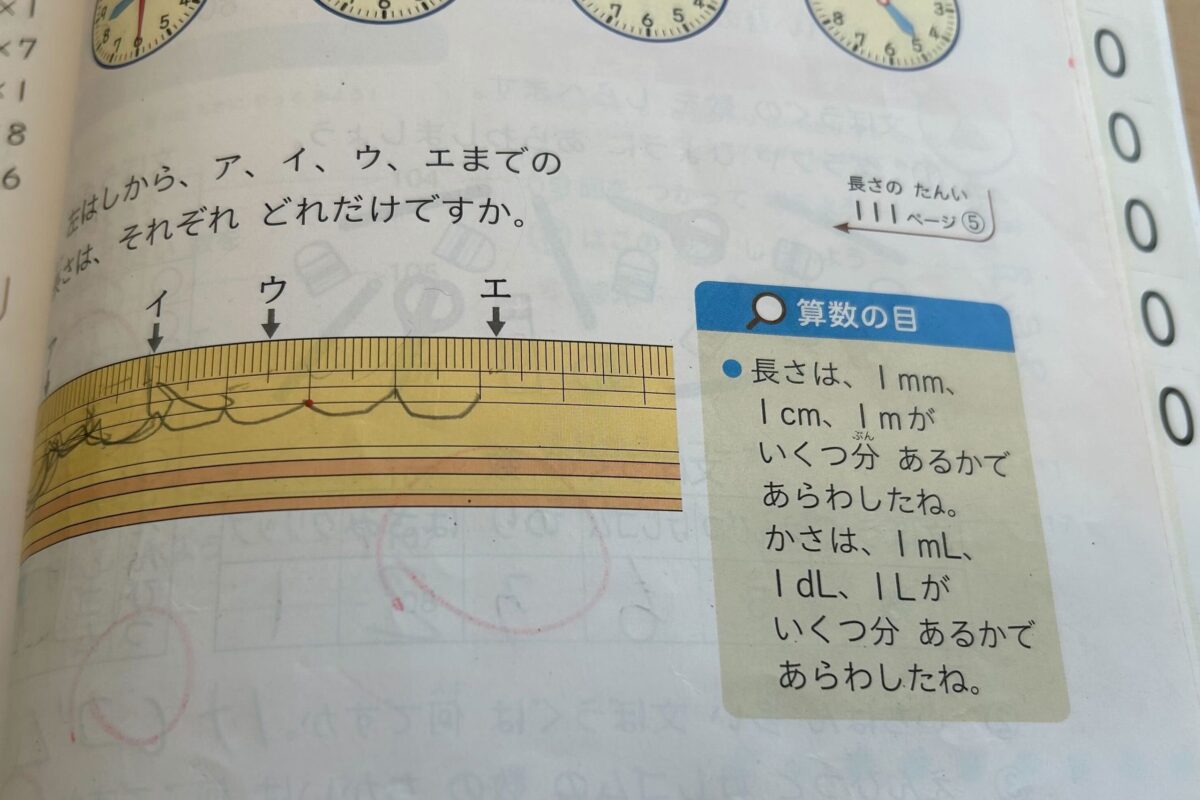 ×1
×7
×1
8
6
4 5 6 7 8
7 6 5
7 6 5
7 6 5 4
左はしから、ア、イ、ウ、エまでの
長さは、それぞれ どれだけですか。
長さの たんい
111ページ⑤
ア
イ
ウ
エ
算数の目
●長さは、1mm、
1cm、1mが
いくつ分 あるかで
ぶん
あらわしたね。
かさは、1mL、
1dL、1Lが
いくつ分 あるかで
あらわしたね。
0
0
0
0
0